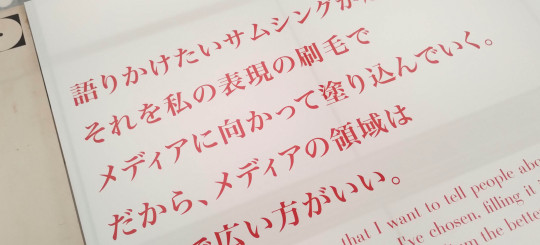 語りかけたいサムシングが
それを私の表現の刷毛で
メディアに向かって塗り込んでいく。
だから、メディアの領域は
で広い方がいい。
that I want to tell people abo
chosen, filling it
the better